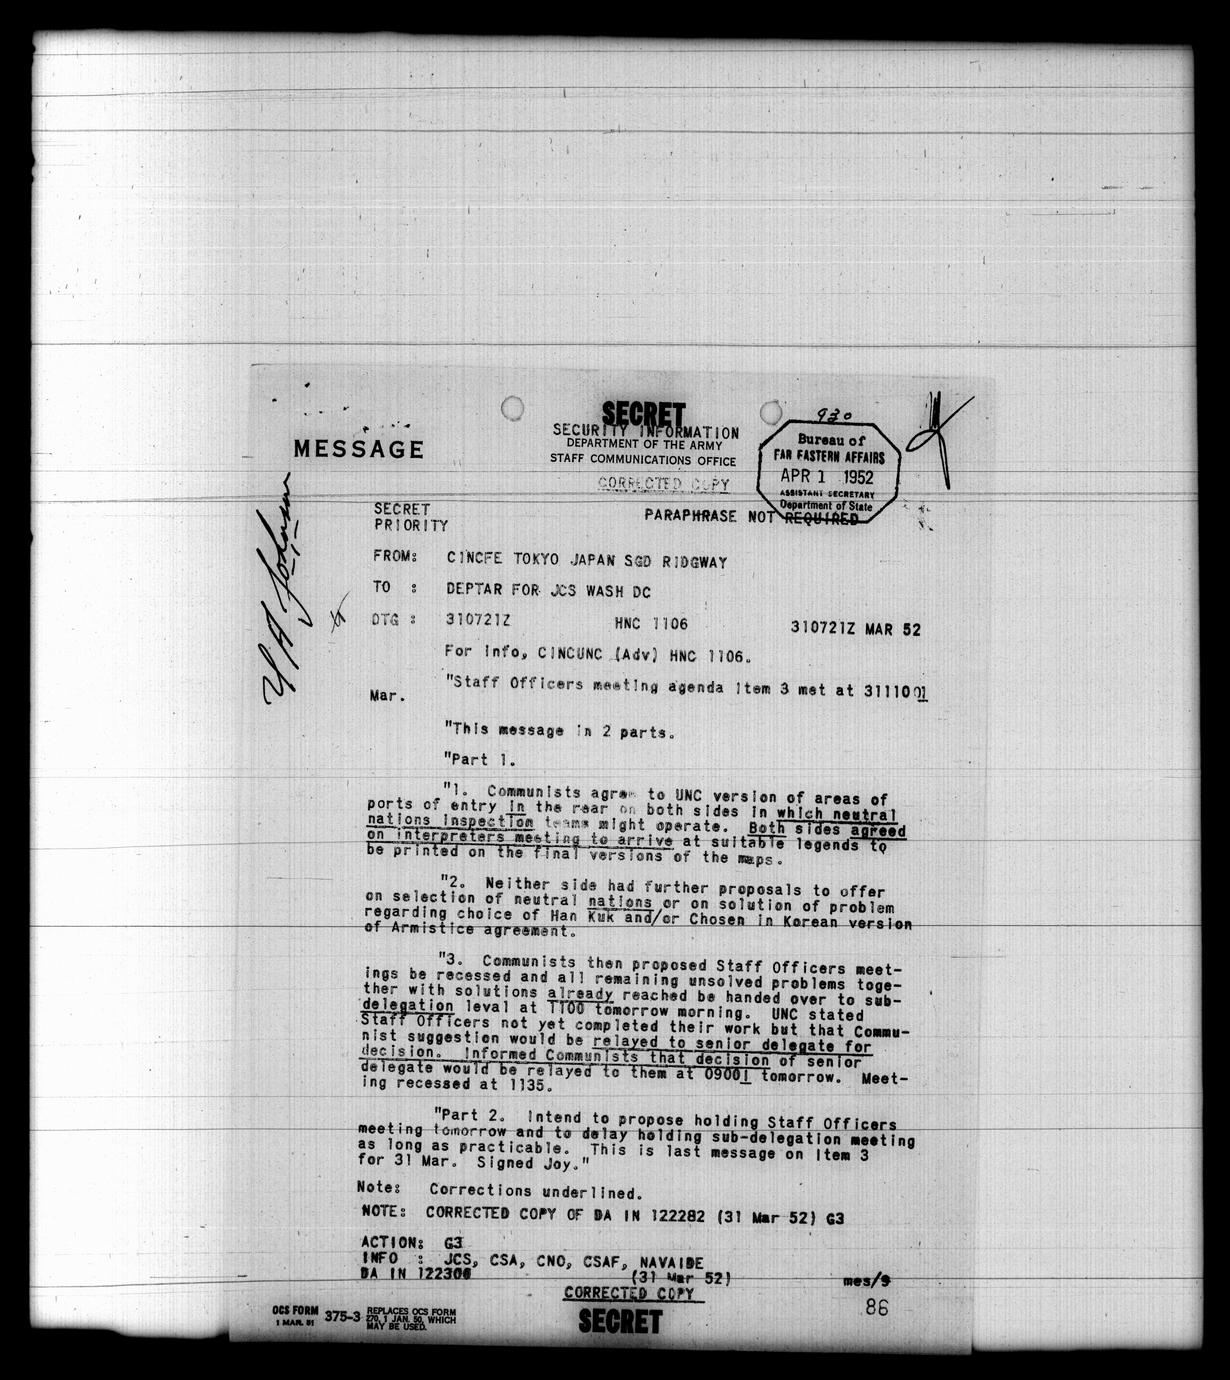 SECRET
SECURITY INFORMATION
DEPARTMENT OF THE ARMY
STAFF COMMUNICATIONS OFFICE
CORRECTED COPY
MESSAGE
930
Bureau of
FAR EASTERN AFFAIRS
APR 1 1952
ASSISTANT SECRETARY
Department of State
U A Johnson
SECRET
PRIORITY
PARAPHRASE NOT REQUIRED
FROM: CINCFE TOKYO JAPAN SGD RIDGWAY
TO : DEPTAR FOR JCS WASH DC
DTG : 310721Z HNC 1106 310721Z MAR 52
For info, CINCUNC (Adv) HNC 1106.
"Staff Officers meeting agenda item 3 met at 311100I
Mar.
"This message in 2 parts.
"Part 1.
"1. Communists agree to UNC version of areas of
ports of entry in the rear on both sides in which neutral
nations inspection teams might operate. Both sides agreed
on interpreters meeting to arrive at suitable legends to
be printed on the final versions of the maps.
"2. Neither side had further proposals to offer
on selection of neutral nations or on solution of problem
regarding choice of Han Kuk and/or Chosen in Korean version
of Armistice agreement.
"3. Communists then proposed Staff Officers meet-
ings be recessed and all remaining unsolved problems toge-
ther with solutions already reached be handed over to sub-
delegation leval at 1100 tomorrow morning. UNC stated
Staff Officers not yet completed their work but that Commu-
nist suggestion would be relayed to senior delegate for
decision. Informed Communists that decision of senior
delegate would be relayed to them at 0900I tomorrow. Meet-
ing recessed at 1135.
"Part 2. Intend to propose holding Staff Officers
meeting tomorrow and to delay holding sub-delegation meeting
as long as practicable. This is last message on Item 3
for 31 Mar. Signed Joy."
Note: Corrections underlined.
NOTE: CORRECTED COPY OF DA IN 122282 (31 Mar 52) G3
ACTION: G3
INFO : JCS, CSA, CNO, CSAF, NAVAIDE
DA IN 122306 (31 Mar 52) mes/9
CORRECTED COPY
86
OCS FORM 375-3 REPLACES OCS FORM
1 MAR. 51 270, 1 JAN. 50, WHICH
MAY BE USED.
SECRET